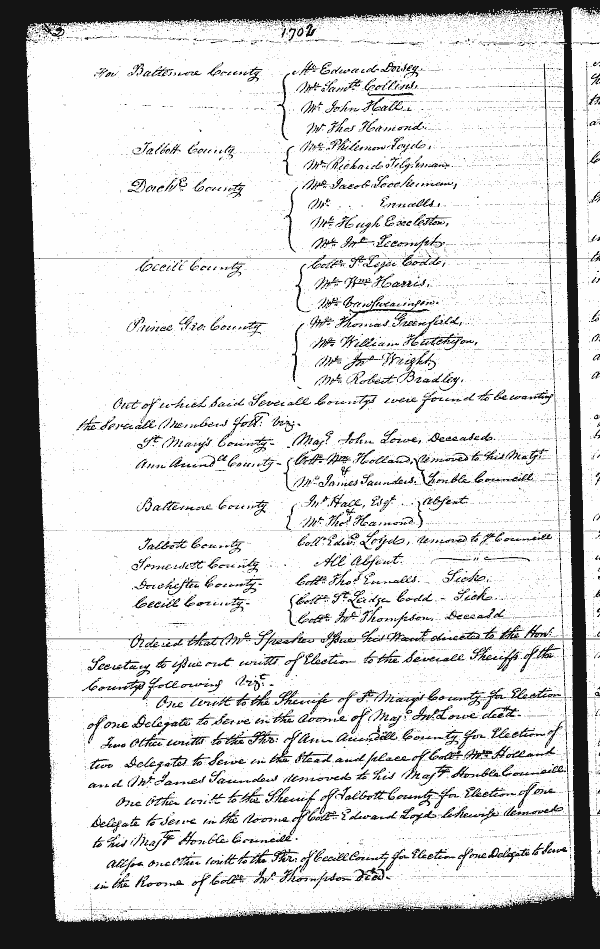 1702
For Baltemore County { Mr Edward Dorsey.
Mr Samll Collins.
Mr John Hall.
Mr Thos Hamond.
Talbott County { Mr Philemon Loyd,
Mr Richard Tilghman
Dorchr County { Mr Jacob Loockerman,
Mr . . . . Ennalls,
Mr Hugh Eccleston,
Mr Jno Lecompt,
Cecill County { Collo St Leger Codd,
Mr Wm Harris.
Mr
Prince Geo: County { Mr Thomas Greenfield,
Mr William Hutchison,
Mr Jno Wright
Mr Robert Bradley.
Out of which said Severall Countys were found to be wanting
the Severall Members foll: viz.
St Mary's County - Majr John Lowe, Deceased
Ann Arundll County - { Collo Wm Holland, & } removed to his Matys
Mr James Saunders. } honble Councill
Baltemore County { Jno Hall, Esqr } Absent
Mr Thos Hamond }
Talbott County Collo Edwd Loyd, removed to ye Councill
Somersett County All Absent.
Dorchester County - Collo Thos Ennalls - Sick.
Cecill County - { Collo St Ledger Codd - Sick
Collo Jno Thompson, Deceasd
Ordered that Mr Speaker Issue his Warrt directed to the Honr
Secretary to issue out writts of Election to the Severall Sheriffs of the
Countys following vizt -
One writt to the Sherife of St Mary's County for Election
of one Delegate to Serve in the roome of Majr Jno Lowe decd.
Two Other writts to the Shr: of Ann Arundill County for Election of
two Delegates to Serve in the Stead and place of Collo Wm Holland
and Mr James Saunders removed to his Matys Honble Councill
One Other writt to the Sherif of Talbott County for Election of one
Delegate to Serve in the roome of Collo Edward Loyd likewise removed
to his Matys Honble Councill
Allsoe one other writt to the Shr. of Cecill County for Election of one Delegate to Serve
in the Roome of Collo Jno Thompson Died.